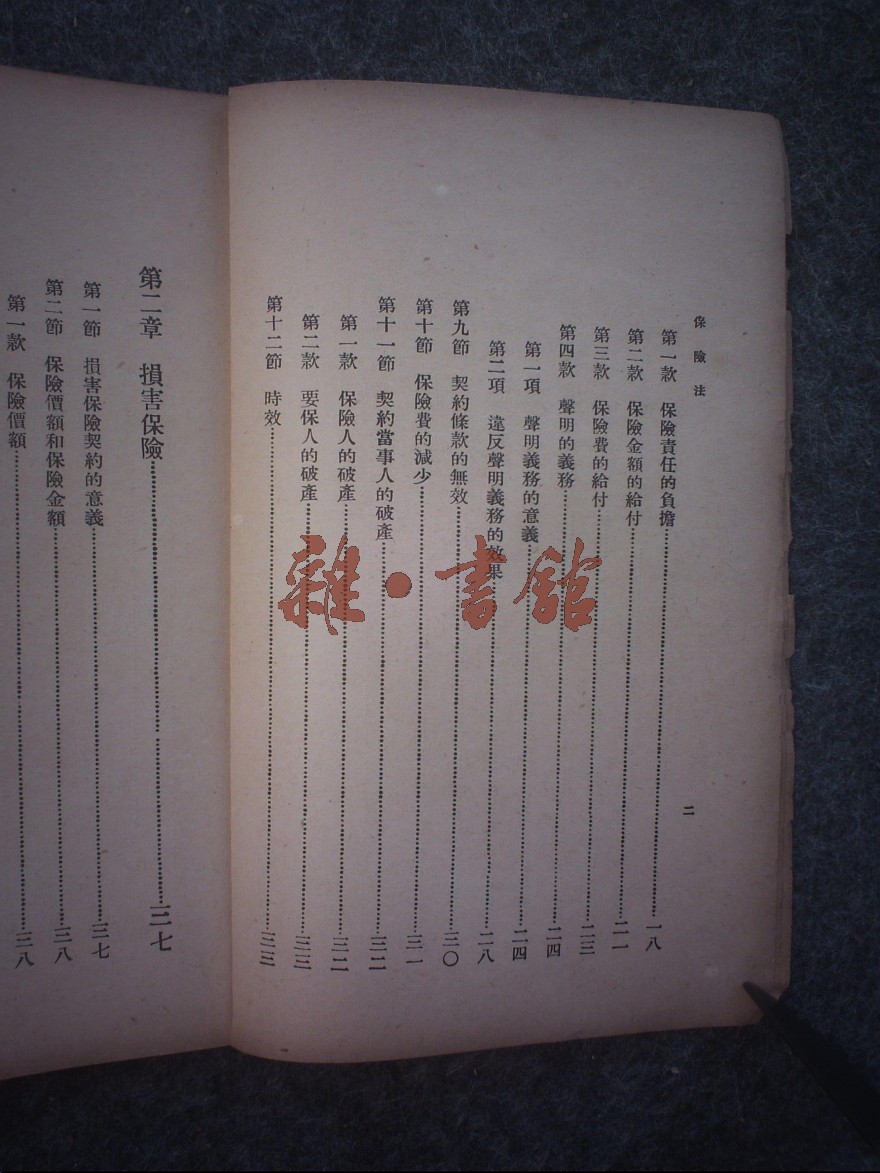 保險法
二
第一款 保險責任的負擔……一八
第二款 保險金額的給付……二一
第三款 保險費的給付……二三
第四款 聲明的義務……二四
第一項 聲明義務的意義……二四
第二項 違反聲明義務的效果……二八
第九節 契約條款的無效……三〇
第十節 保險費的減少……三一
第十一節 契約當事人的破產……三二
第一款 保險人的破產……三二
第二款 要保人的破產……三三
第十二節 時效……三三
第二章 損害保險……三七
第一節 損害保險契約的意義……三七
第二節 保險價額和保險金額……三八
第一款 保險價額……三八
雜·書館